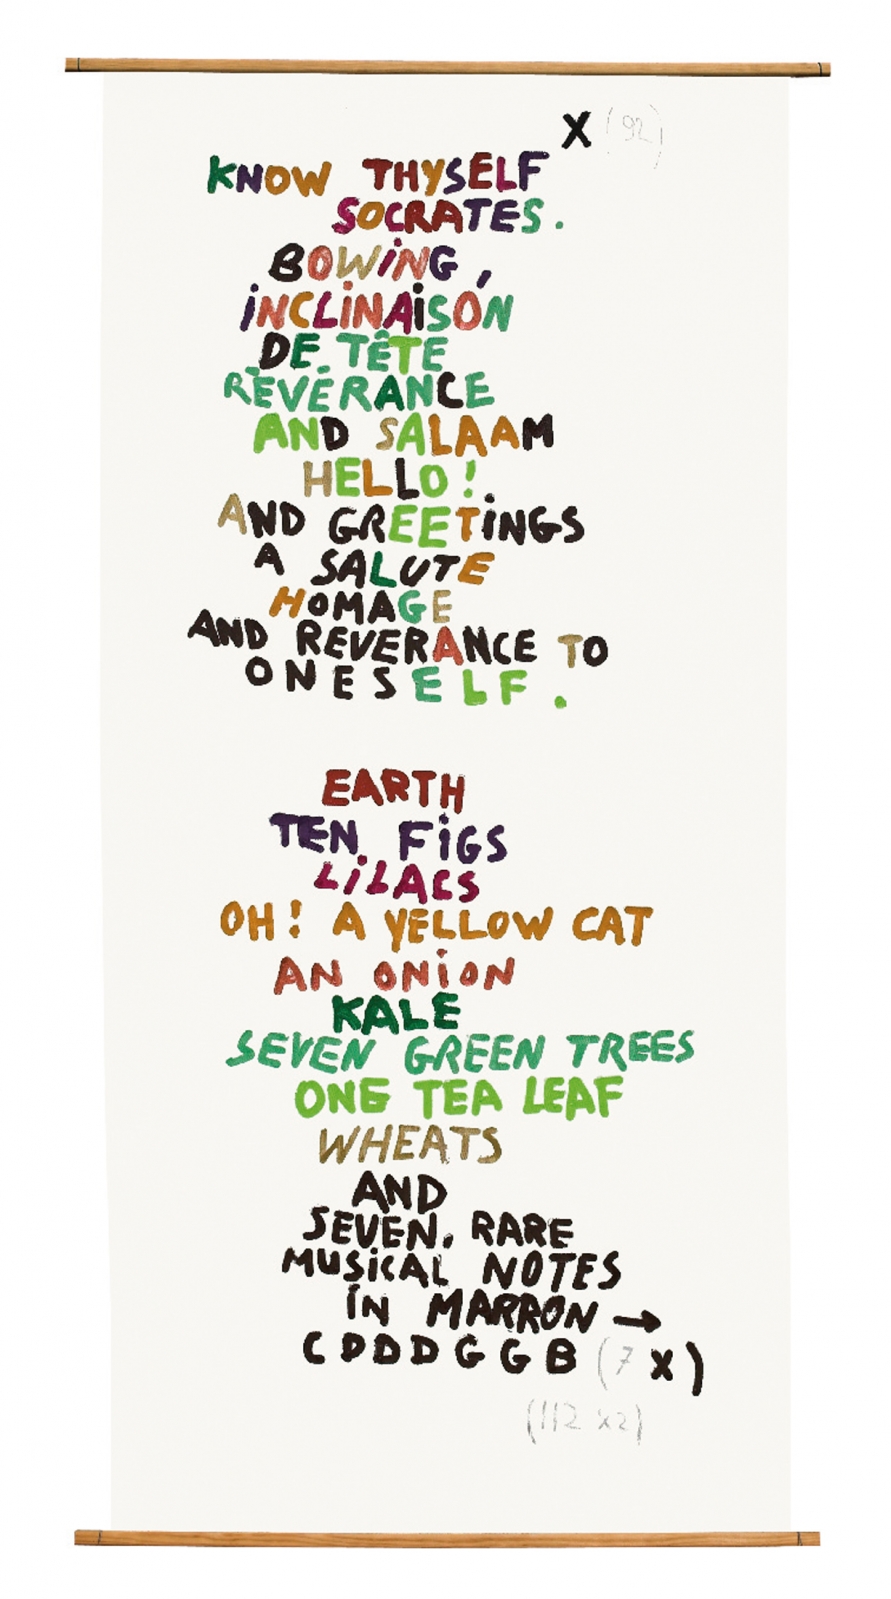 X (92)
KNOW THYSELF
SOCRATES.
BOWING,
INCLINAISON
DE TÊTE
RÉVÉRANCE
AND SALAAM
HELLO!
AND GREETINGS
A SALUTE
HOMAGE
AND REVERANCE TO
ONESELF.
EARTH
TEN FIGS
LILACS
OH! A YELLOW CAT
AN ONION
KALE
SEVEN GREEN TREES
ONE TEA LEAF
WHEATS
AND
SEVEN. RARE
MUSICAL NOTES
IN MARRON →
C D D D G G B (7 X)
(112 x2)